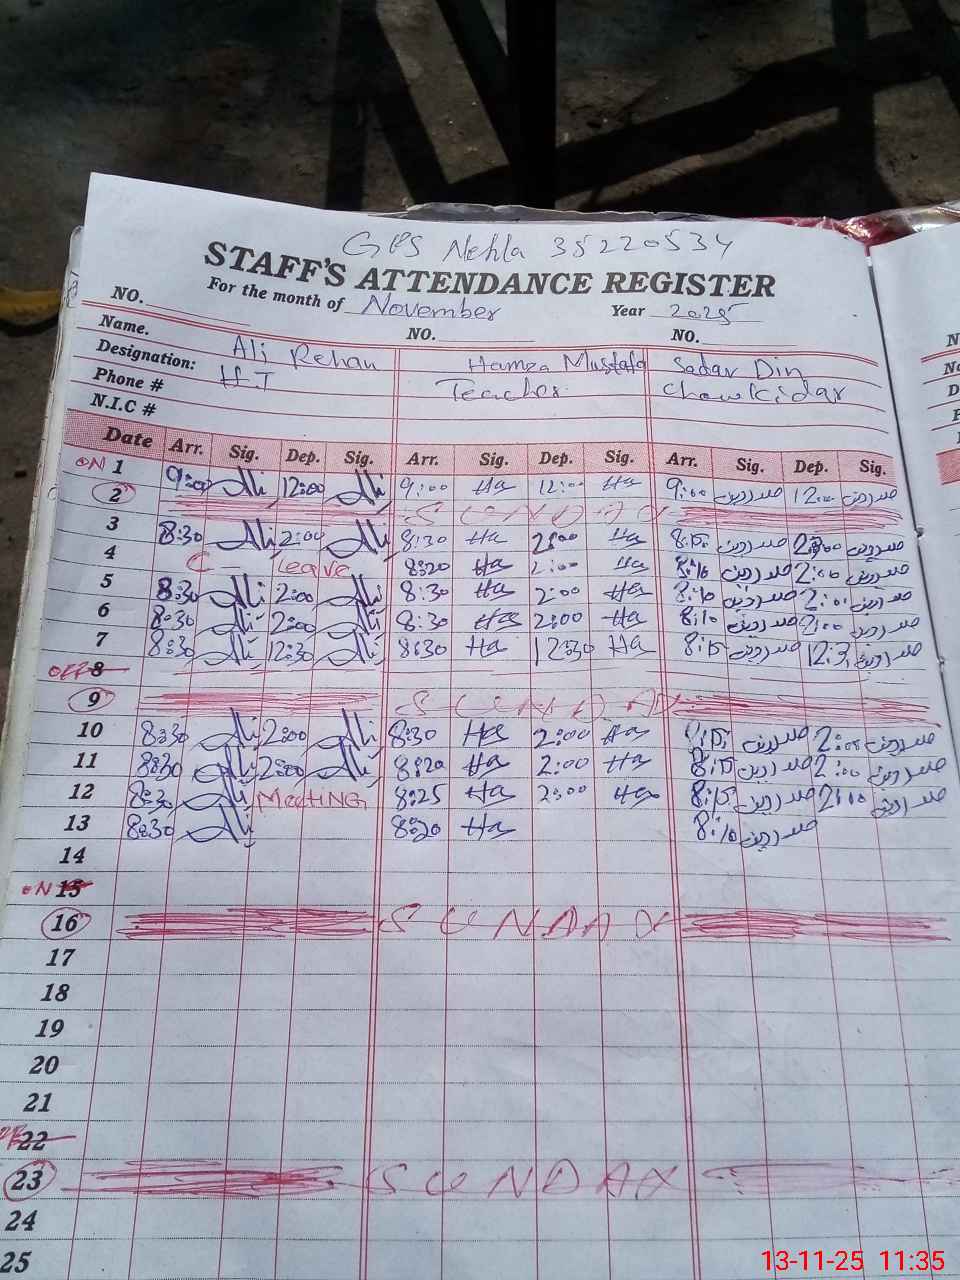 GPS Nehla 35220534
STAFF'S ATTENDANCE REGISTER
For the month of November Year 2025
NO. NO. NO.
Name. Ali Rehan Hamza Mustafa Sadar Din
Designation: HT Teacher Chowkidar
Phone #
N.I.C #
Date Arr. Sig. Dep. Sig. Arr. Sig. Dep. Sig. Arr. Sig. Dep. Sig.
ON 1 9:00 Ali 12:00 Ali 9:00 Ha 12:00 Ha 9:00 صدردین 12:00 صدردین
2 SUNDAY
3 8:30 Ali 2:00 Ali 8:30 Ha 2:00 Ha 8:15 صدردین 2:00 صدردین
4 C - Leave 8:20 Ha 2:00 Ha 8:10 صدردین 2:00 صدردین
5 8:30 Ali 2:00 Ali 8:30 Ha 2:00 Ha 8:10 صدردین 2:00 صدردین
6 8:30 Ali 2:00 Ali 8:30 Ha 2:00 Ha 8:10 صدردین 2:00 صدردین
7 8:30 Ali 12:30 Ali 8:30 Ha 12:30 Ha 8:15 صدردین 12:3 صدردین
OFF 8
9 SUNDAY
10 8:30 Ali 2:00 Ali 8:30 Ha 2:00 Ha صدردین 2:00 صدردین
11 8:30 Ali 2:00 Ali 8:20 Ha 2:00 Ha 8:15 صدردین 2:00 صدردین
12 8:30 Ali MeetiNG 8:25 Ha 2:00 Ha 8:15 صدردین 2:00 صدردین
13 8:30 Ali 8:20 Ha 8:10 صدردین
14
ON 15
16 SUNDAY
17
18
19
20
21
22
23 SUNDAY
24
25
13-11-25 11:35